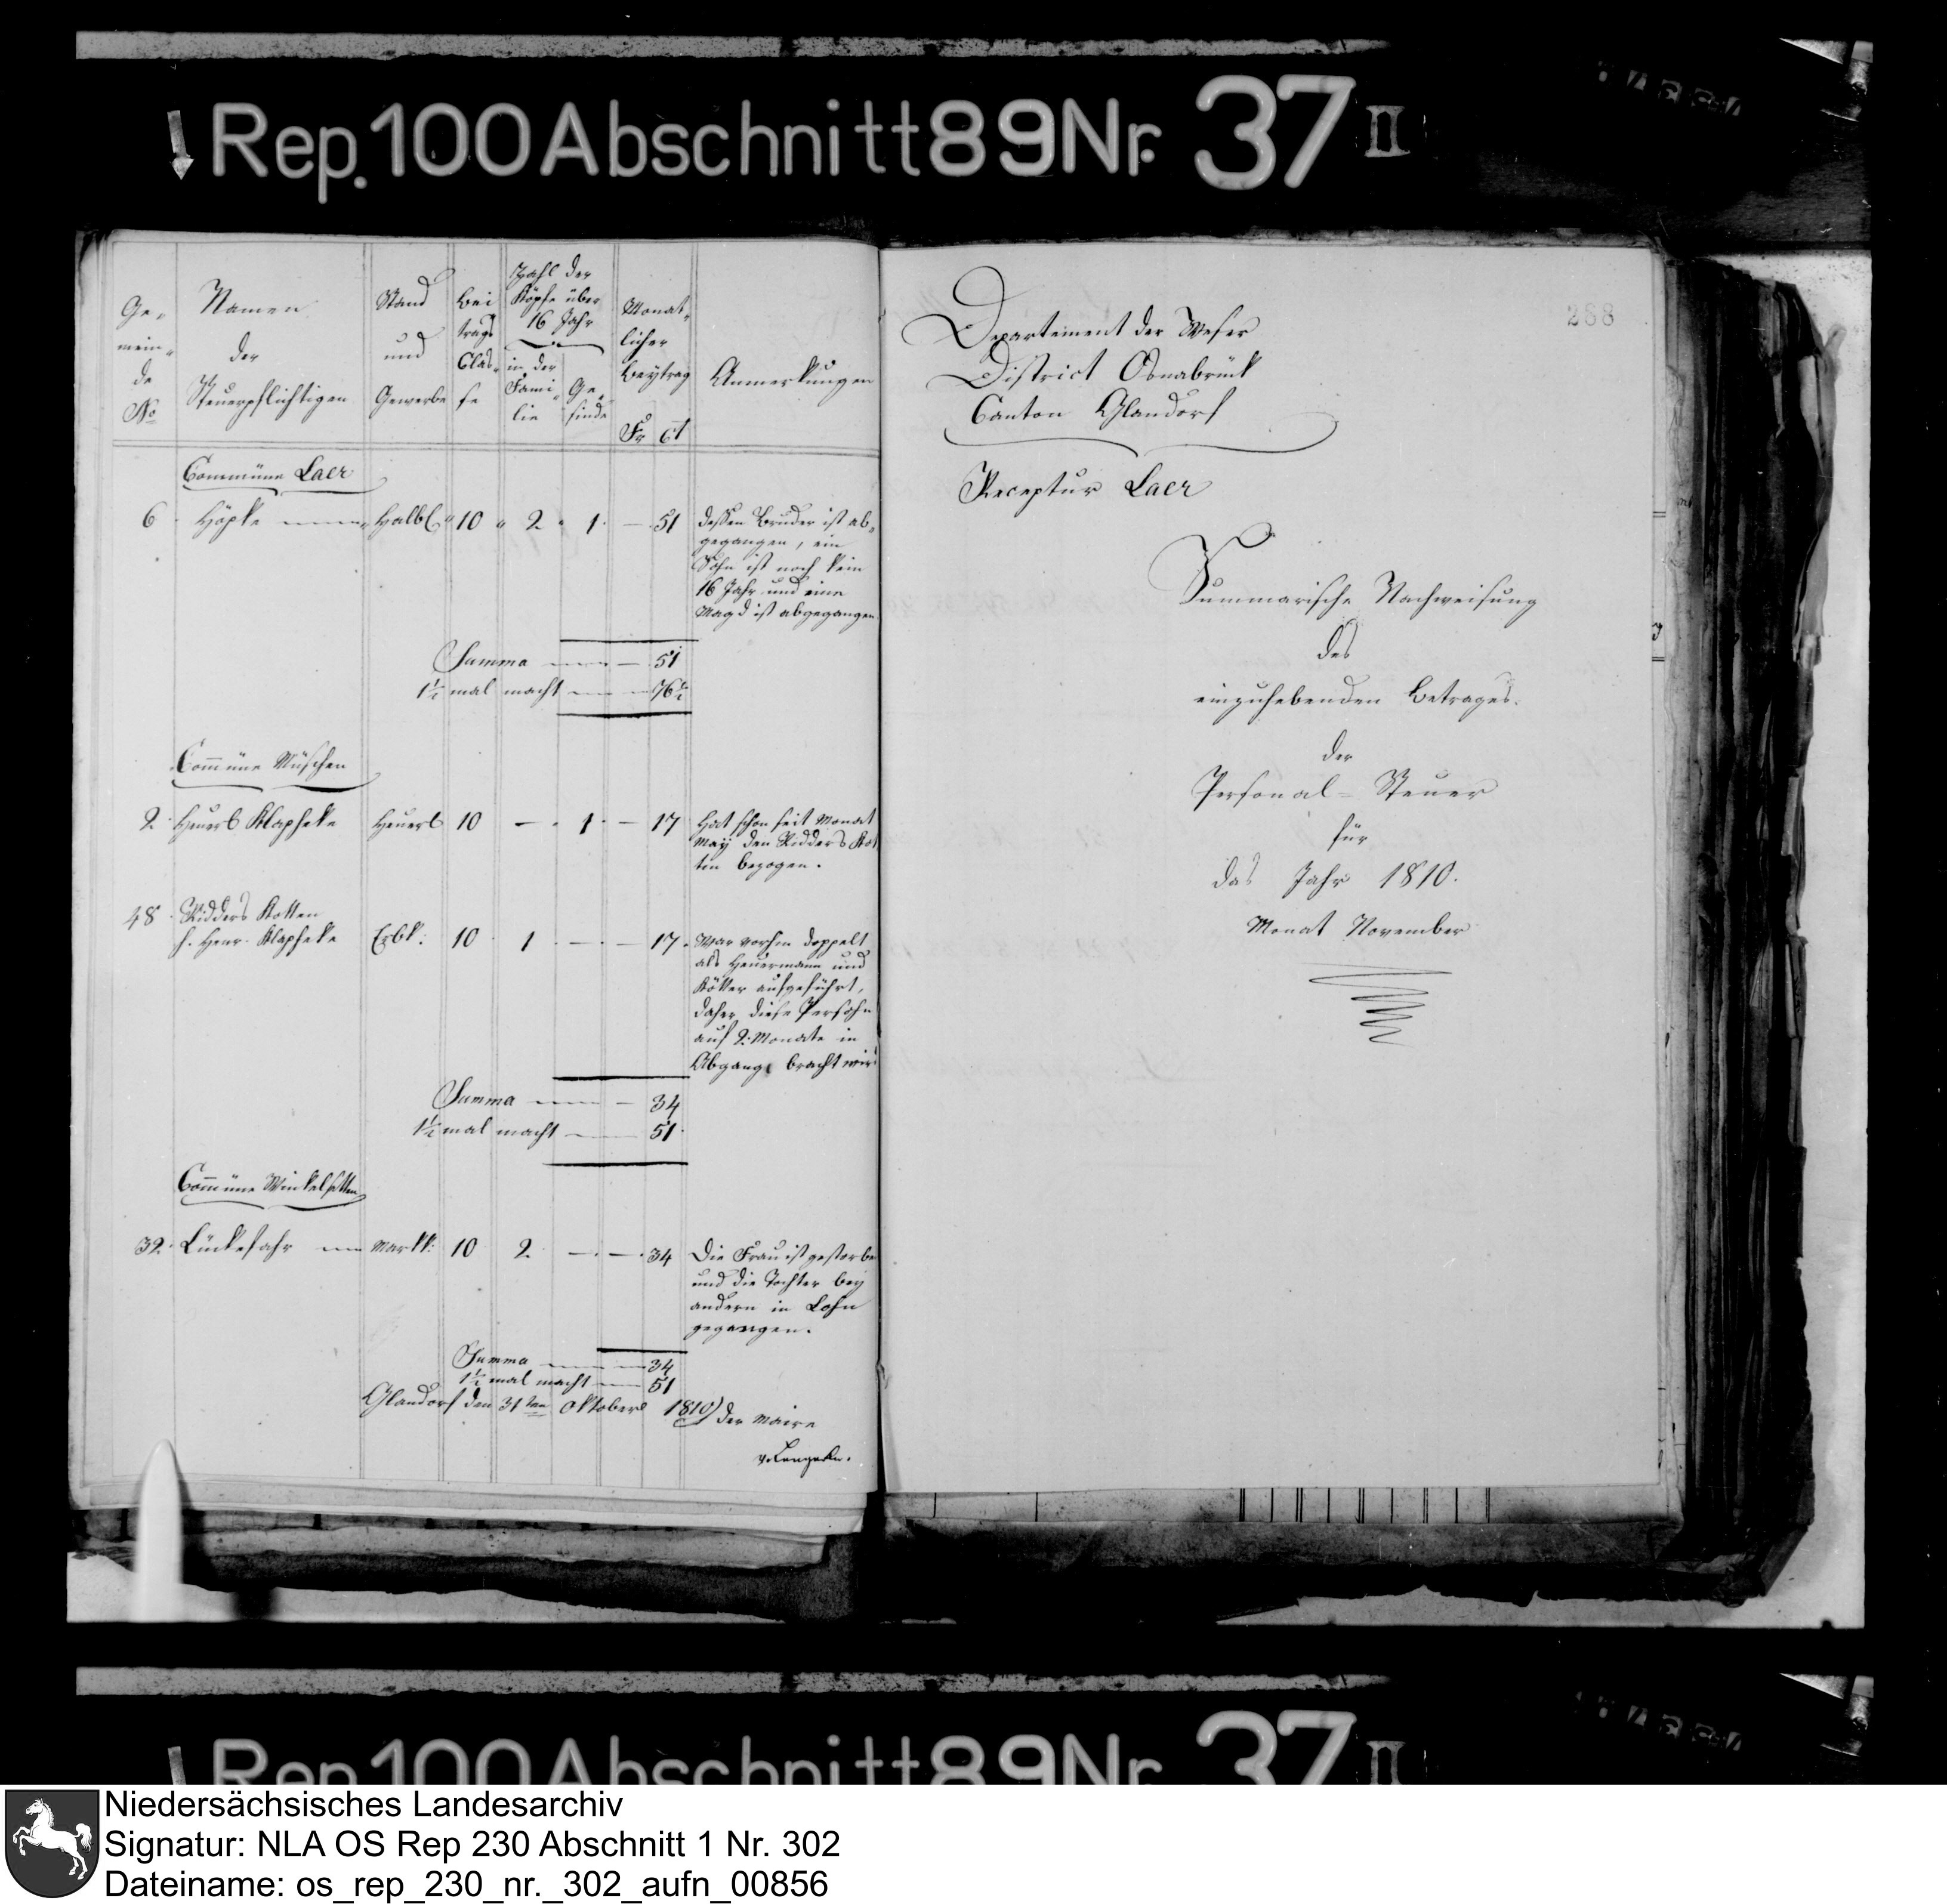 Rep. 100 Abschnitt 89 Nr. 37 II
Ge-
mein-
de
No
Namen
der
Steuerpflichtigen
Stand
und
Gewerbe
Bei
trags
Clas-
se
Zahl der
Köpfe über
16 Jahr
in der
Fami-
lie
Ge-
sinde
Monat-
licher
Beytrag
Fr Ct
Anmerkungen
Commüne Laer
6 Höpke Halb 10 2 1 — 51
dessen Bruder ist ab-
gegangen, ein
Sohn ist noch kein
16 Jahr und eine
Magd ist abgegangen
Summa — 51
1½ mal macht — 76½
Com̄üne Müschen
2 Heuerl Klapheke Heuerl 10 — 1 — 17
Hat schon seit Monat
May den Ridders Kot
ten bezogen.
48 Ridders Kotten
s. Henr. Klapheke Erbk: 10 1 — — 17
War vorhin doppelt
als Heuermann und
Kötter aufgeführt,
daher diese Persohn
auf 2 Monate in
Abgang bracht wird
Summa — 34
1½ mal macht — 51
Com̄üne Winkelsetten
32 Lückefahr Markk: 10 2 — — 34
Die Frau ist gestorben
und die Tochter bey
andern in Lohn
gegangen.
Summa — 34
1½ mal macht — 51
Glandorf den 31ten Oktober 1810 der Maire
288
Departement der Weser
District Osnabrück
Canton Glandorf
Receptur Laer
Summarische Nachweisung
des
einzuhebenden Betrages
der
Personal-Steuer
für
das Jahr 1810.
Monat November
Rep. 100 Abschnitt 89 Nr. 37 II
Niedersächsisches Landesarchiv
Signatur: NLA OS Rep 230 Abschnitt 1 Nr. 302
Dateiname: os_rep_230_nr._302_aufn_00856